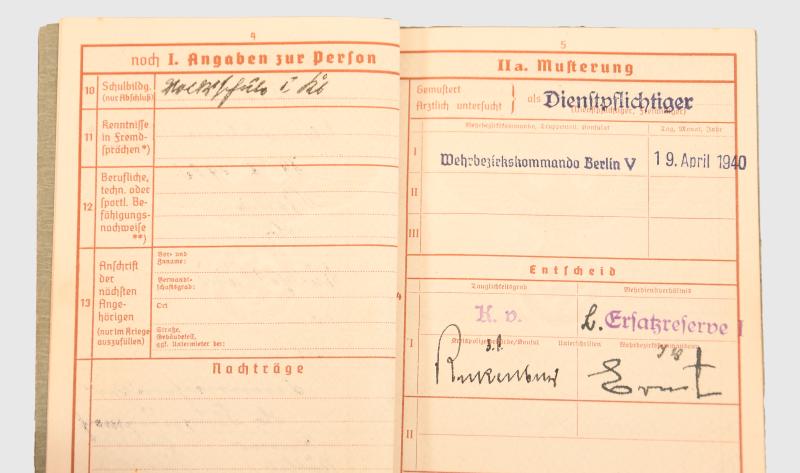 4
noch I. Angaben zur Person
10 Schulbildg. (nur Abschluß) Volksschule
11 Kenntnisse in Fremd-
sprachen*)
12 Berufliche,
techn. oder
sportl. Be-
fähigungs-
nachweise
**)
13 Anschrift
der
nächsten
Ange-
hörigen
(nur im Kriege
auszufüllen)
Vor- und
Zuname:
Verwandt-
schaftsgrad:
Ort
Straße,
Gebäudeteil,
ggf. Untermieter bei:
Nachträge
5
IIa. Musterung
Gemustert
Ärztlich untersucht } als Dienstpflichtiger
(Dienstpflichtiger, Freiwilliger)
Wehrbezirkskommando, Truppenteil, Konsulat Tag, Monat, Jahr
I Wehrbezirkskommando Berlin V 19. April 1940
II
III
Entscheid
Tauglichkeitsgrad Wehrdienstverhältnis
K. v. L. Ersatzreserve I
I Unterschriften Wehrbezirkskommandeur
Ernst
II